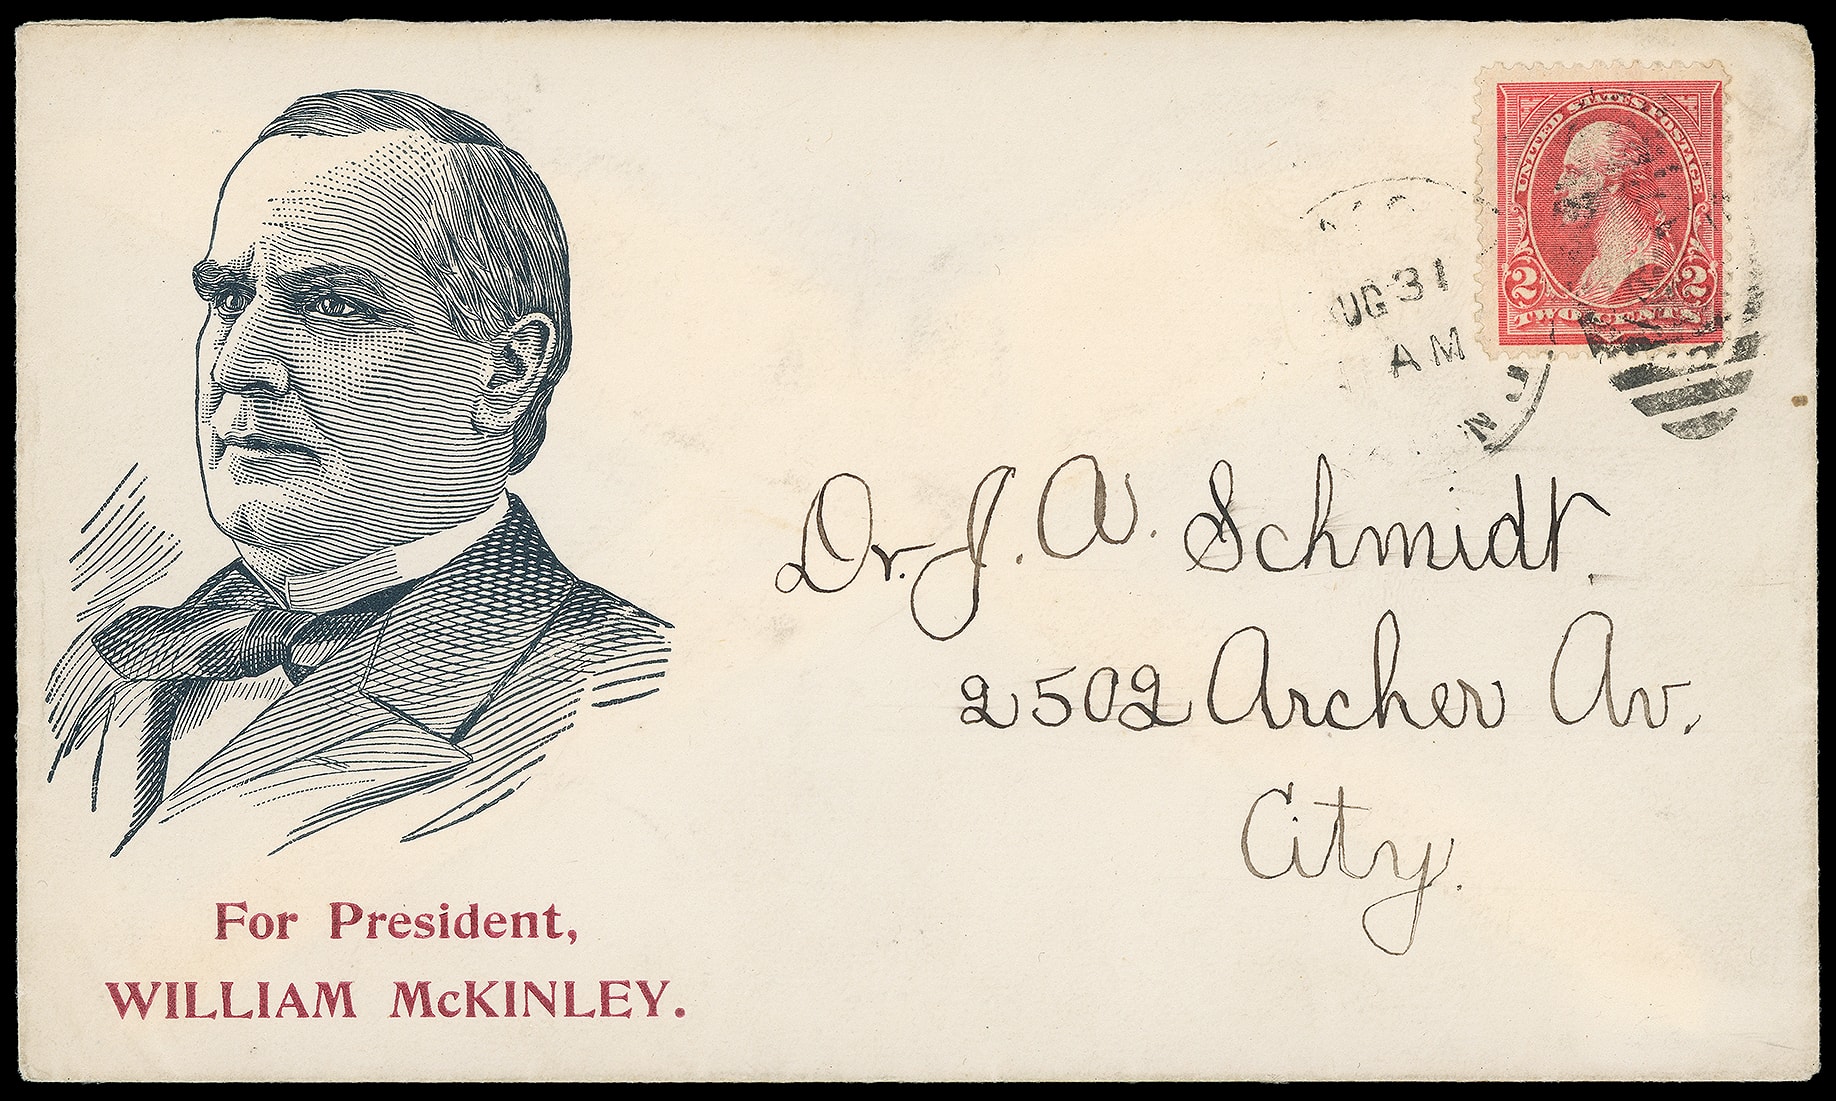 UNITED STATES POSTAGE
2 2
TWO CENTS
UG 31
AM
Dr. J. A. Schmidt.
2502 Archer Av.
City.
For President,
WILLIAM McKINLEY.